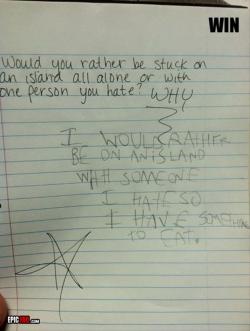 WIN
Would you rather be stuck on
an island all alone or with
one person you hate? WHY
I WOULD RATHER
BE ON AN ISLAND
WITH SOMEONE
I HATE SO
I HAVE SOMETHING
TO EAT.
EPICFAIL.COM